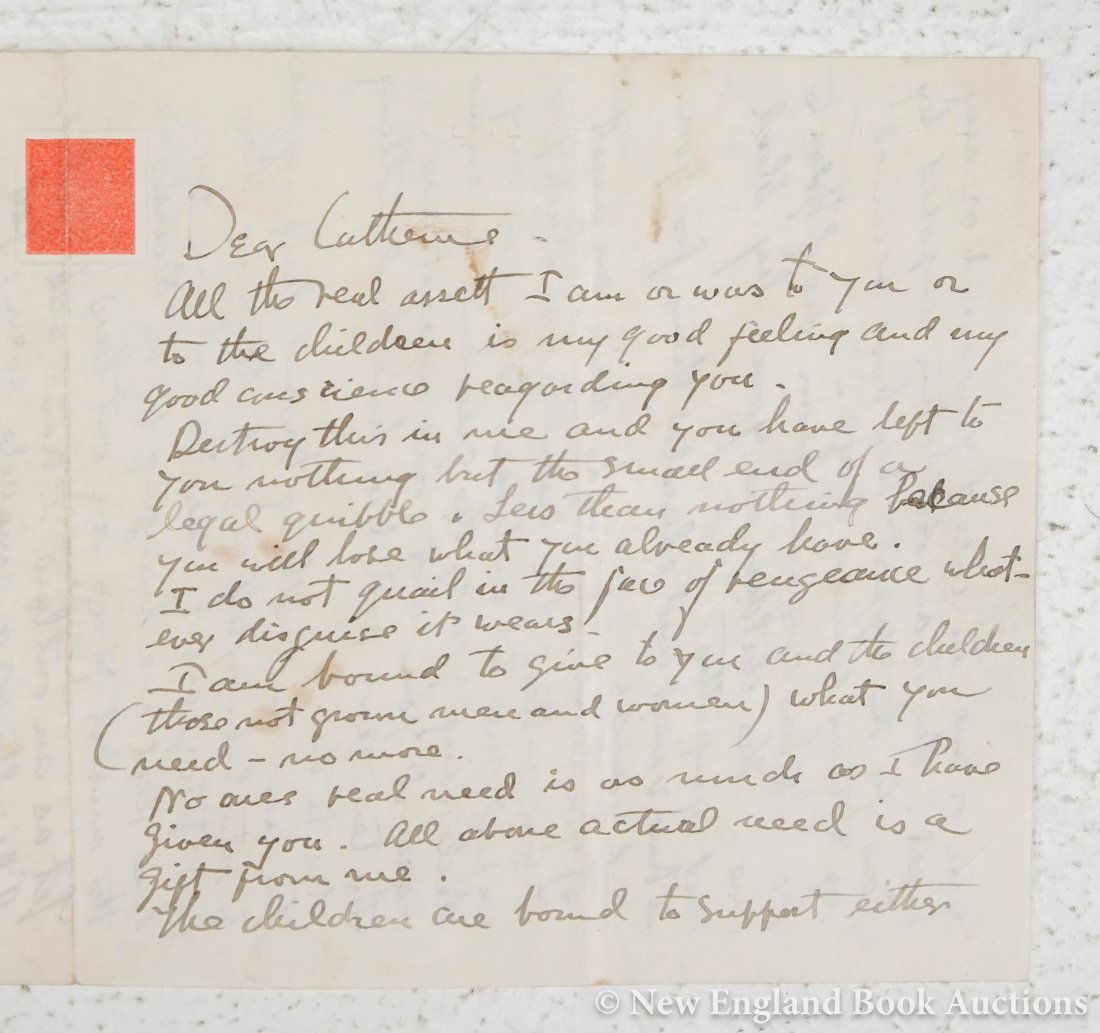 Dear Catherine -
All the real assett I am or was to you or
to the children is my good feeling and my
good conscience reagarding you.
Destroy this in me and you have left to
you nothing but the small end of a
legal quibble. Less than nothing because
you will lose what you already have.
I do not quail in the face of vengeance what-
ever disguise it wears -
I am bound to give to you and the children
(those not grown men and women) what you
need - no more.
No ones real need is as much as I have
given you. All above actual need is a
gift from me.
The children are bound to support either
© New England Book Auctions